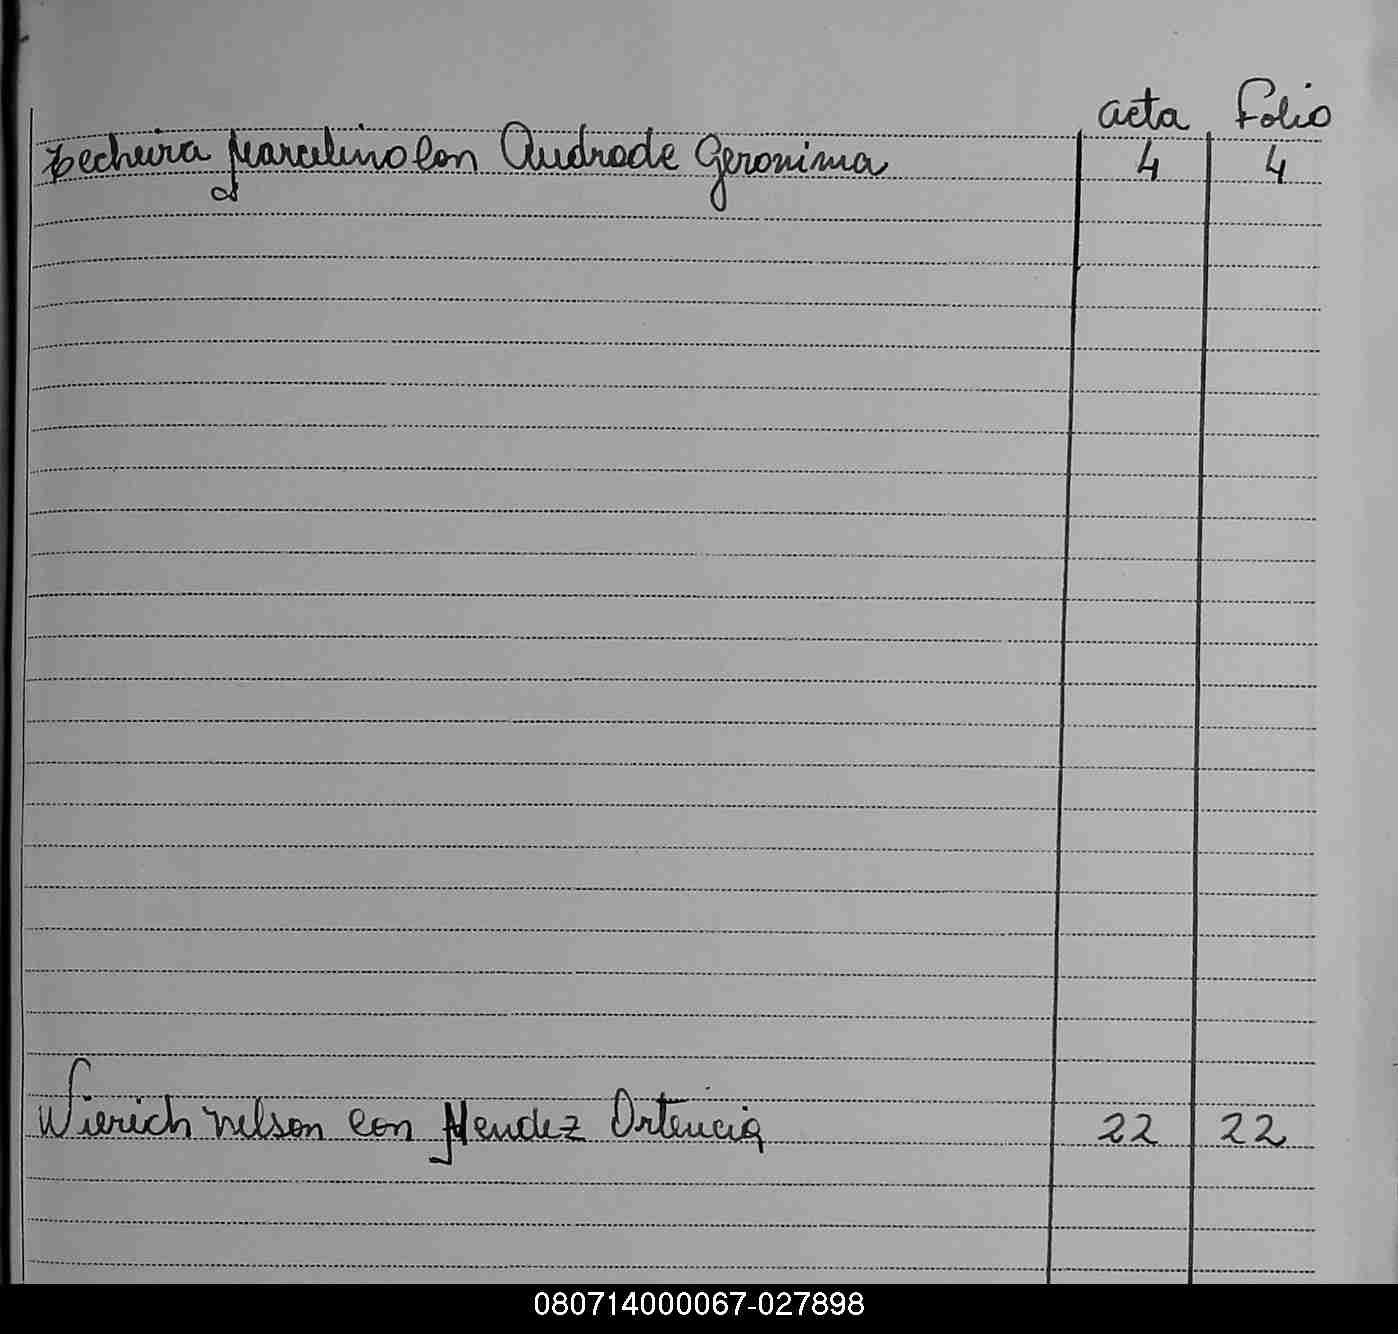 acta Folio
Techeira Marcelino con Andrade Geronima 4 4
Wierich Nelson con Mendez Ortencia 22 22
080714000067-027898